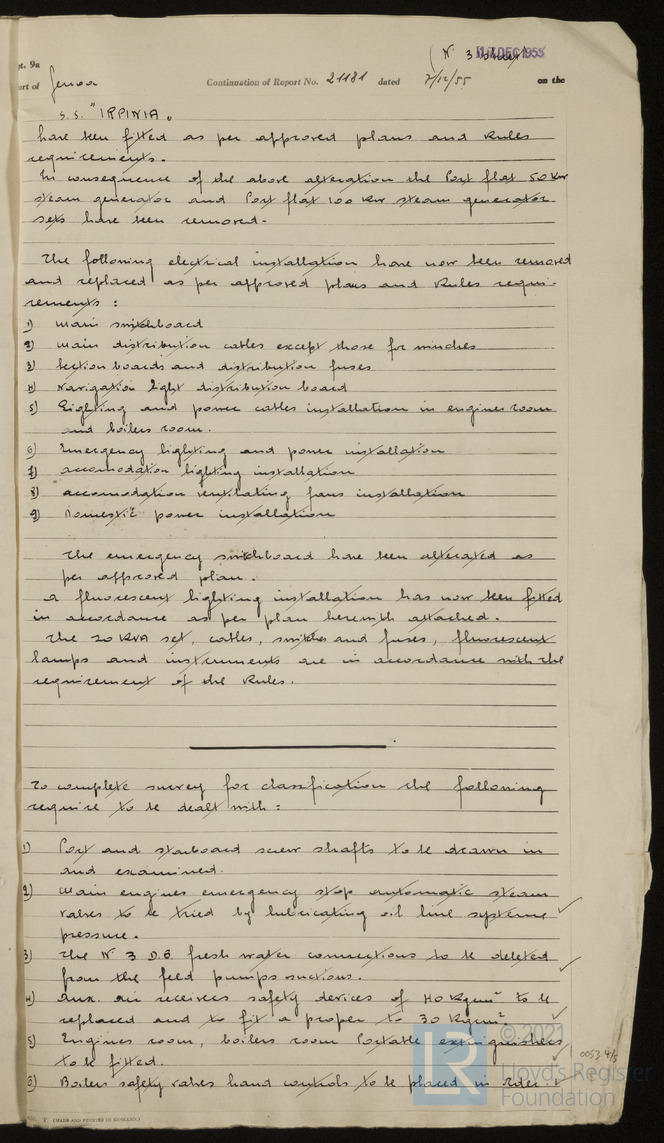 pt. 9a
( N° 3 sheet
17 DEC 1955
ort of Genoa Continuation of Report No. 21181 dated 7/12/55 on the
S.S. "IRPINIA"
have been fitted as per approved plans and Rules
requirements.
In consequence of the above alteration the Port flat 50 Kw
steam generator and Port flat 100 Kw steam generator
sets have been removed.
The following electrical installation have now been removed
and replaced as per approved plans and Rules requi-
rements :
1) Main switchboard
2) Main distribution cables except those for winches
3) Section boards and distribution fuses
4) Navigation light distribution board
5) Lighting and power cables installation in engines room
and boilers room.
6) Emergency lighting and power installation
7) accomodation lighting installation
8) accomodation ventilating fans installation
9) Domestic power installation
The emergency switchboard have been alterated as
per approved plan.
A fluorescent lighting installation has now been fitted
in accordance as per plan herewith attached.
The 20 KVA set, cables, switches and fuses, fluorescent
lamps and instruments are in accordance with the
requirement of the Rules.
To complete survey for classification the following
require to be dealt with :
1) Port and starboard screw shafts to be drawn in
and examined.
2) Main engines emergency stop automatic steam
valves to be tried by lubricating oil line systeme
pressure.
3) The N° 3 D.B. fresh water connections to be deleted
from the feed pumps suctions.
4) Aux. air receivers safety devices of 40 Kgcm² to be
replaced and to fit a proper to 30 Kgcm²
5) Engines room, boilers room Portable extinguishers
to be fitted.
6) Boilers safety valves hand controls to be placed in order.
© 2021
Lloyd's Register
Foundation
LR
0053 4/5
T. (MADE AND PRINTED IN ENGLAND.)